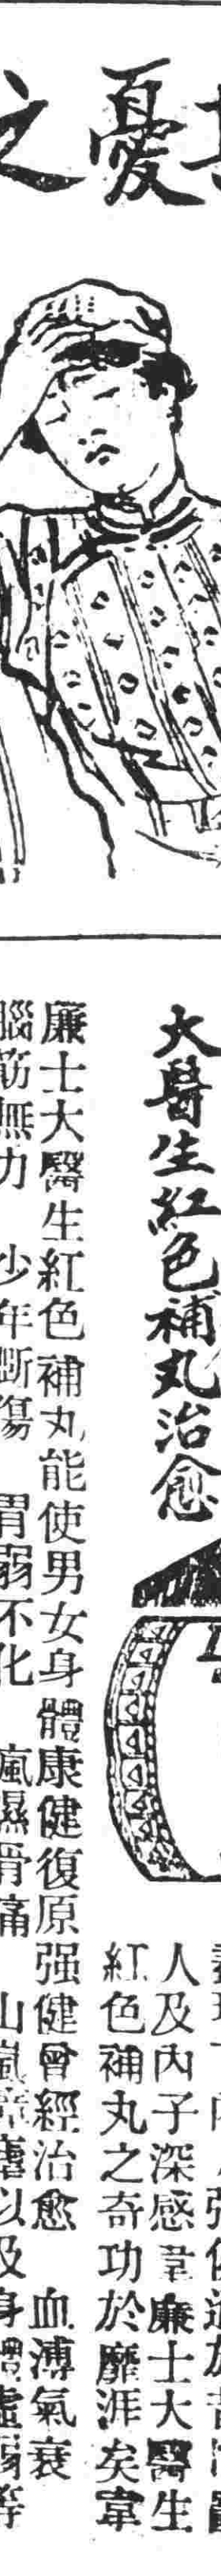 憂之
大醫生紅色補丸治愈
人及內子深感韋廉士大醫生
紅色補丸之奇功於靡涯矣韋
廉士大醫生紅色補丸能使男女身體康健復原强健曾經治愈 血薄氣衰
腦筋無力 少年斷傷 胃弱不化 瘋濕骨痛 山嵐 以及身體虛弱等